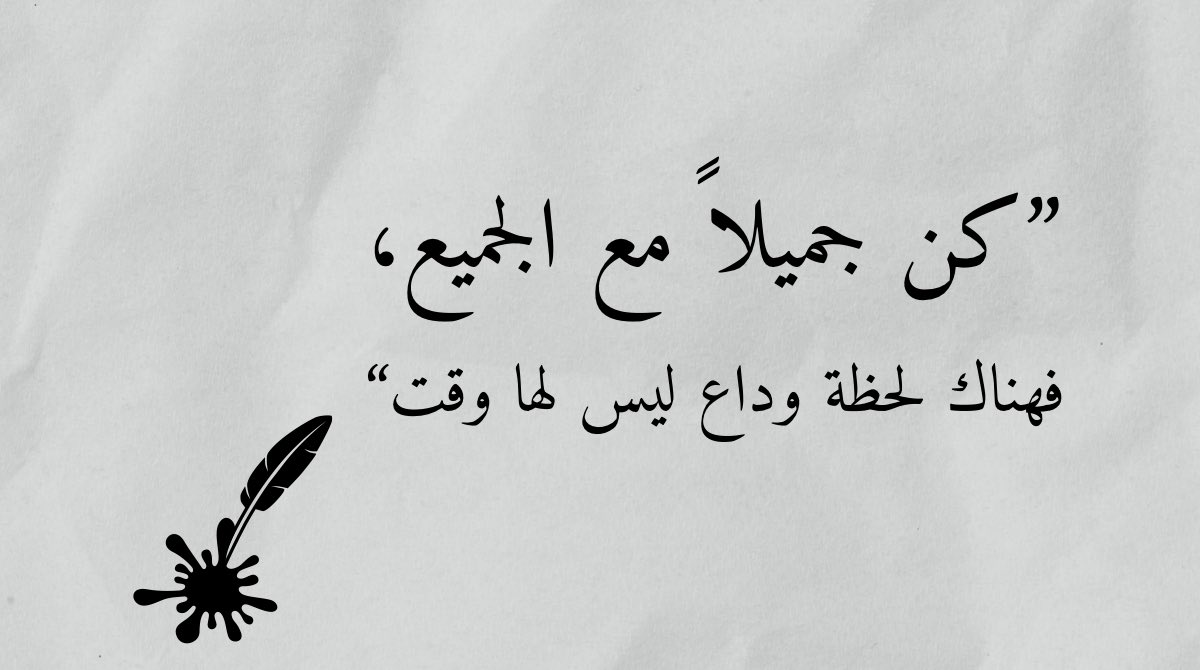 ”كن جميلاً مع الجميع،
فهناك لحظة وداع ليس لها وقت“